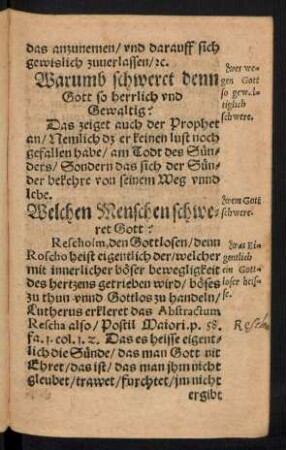 das anzunemen/ vnd darauff sich
gewislich zuuerlassen/ꝛc.
Warumb schweret denn
Gott so herrlich vnd
Gewaltig?
Das zeiget auch der Prophet
an/ Nemlich dz er keinen lust noch
gefallen habe/ am Todt des Sün-
ders/ Sondern das sich der Sün-
der bekehre von seinem Weg vnnd
lebe.
Welchen Menschen schwe-
ret Gott?
Reschoim, den Gottlosen/ denn
Roscho heist eigentlich der/ welcher
mit innerlicher böser bewegligkeit
des hertzens getrieben wird/ böses
zu thun vnnd Gottlos zu handeln/
Lutherus erkleret das Abstractum
Rescha also/ Postil Maiori. p. 58.
fa. 1. col. 1. 2. Das es heisse eigent-
lich die Sünde/ das man Gott nit
Ehret/ das ist/ das man jhm nicht
gleubet/ trawet/ fürchtet/ jm nicht
ergibt
gen Gott
so gewal-
tiglich
schwere.
Wem Gott
schwere.
Was Ei-
gentlich
ein Gott-
loser heis-
se.